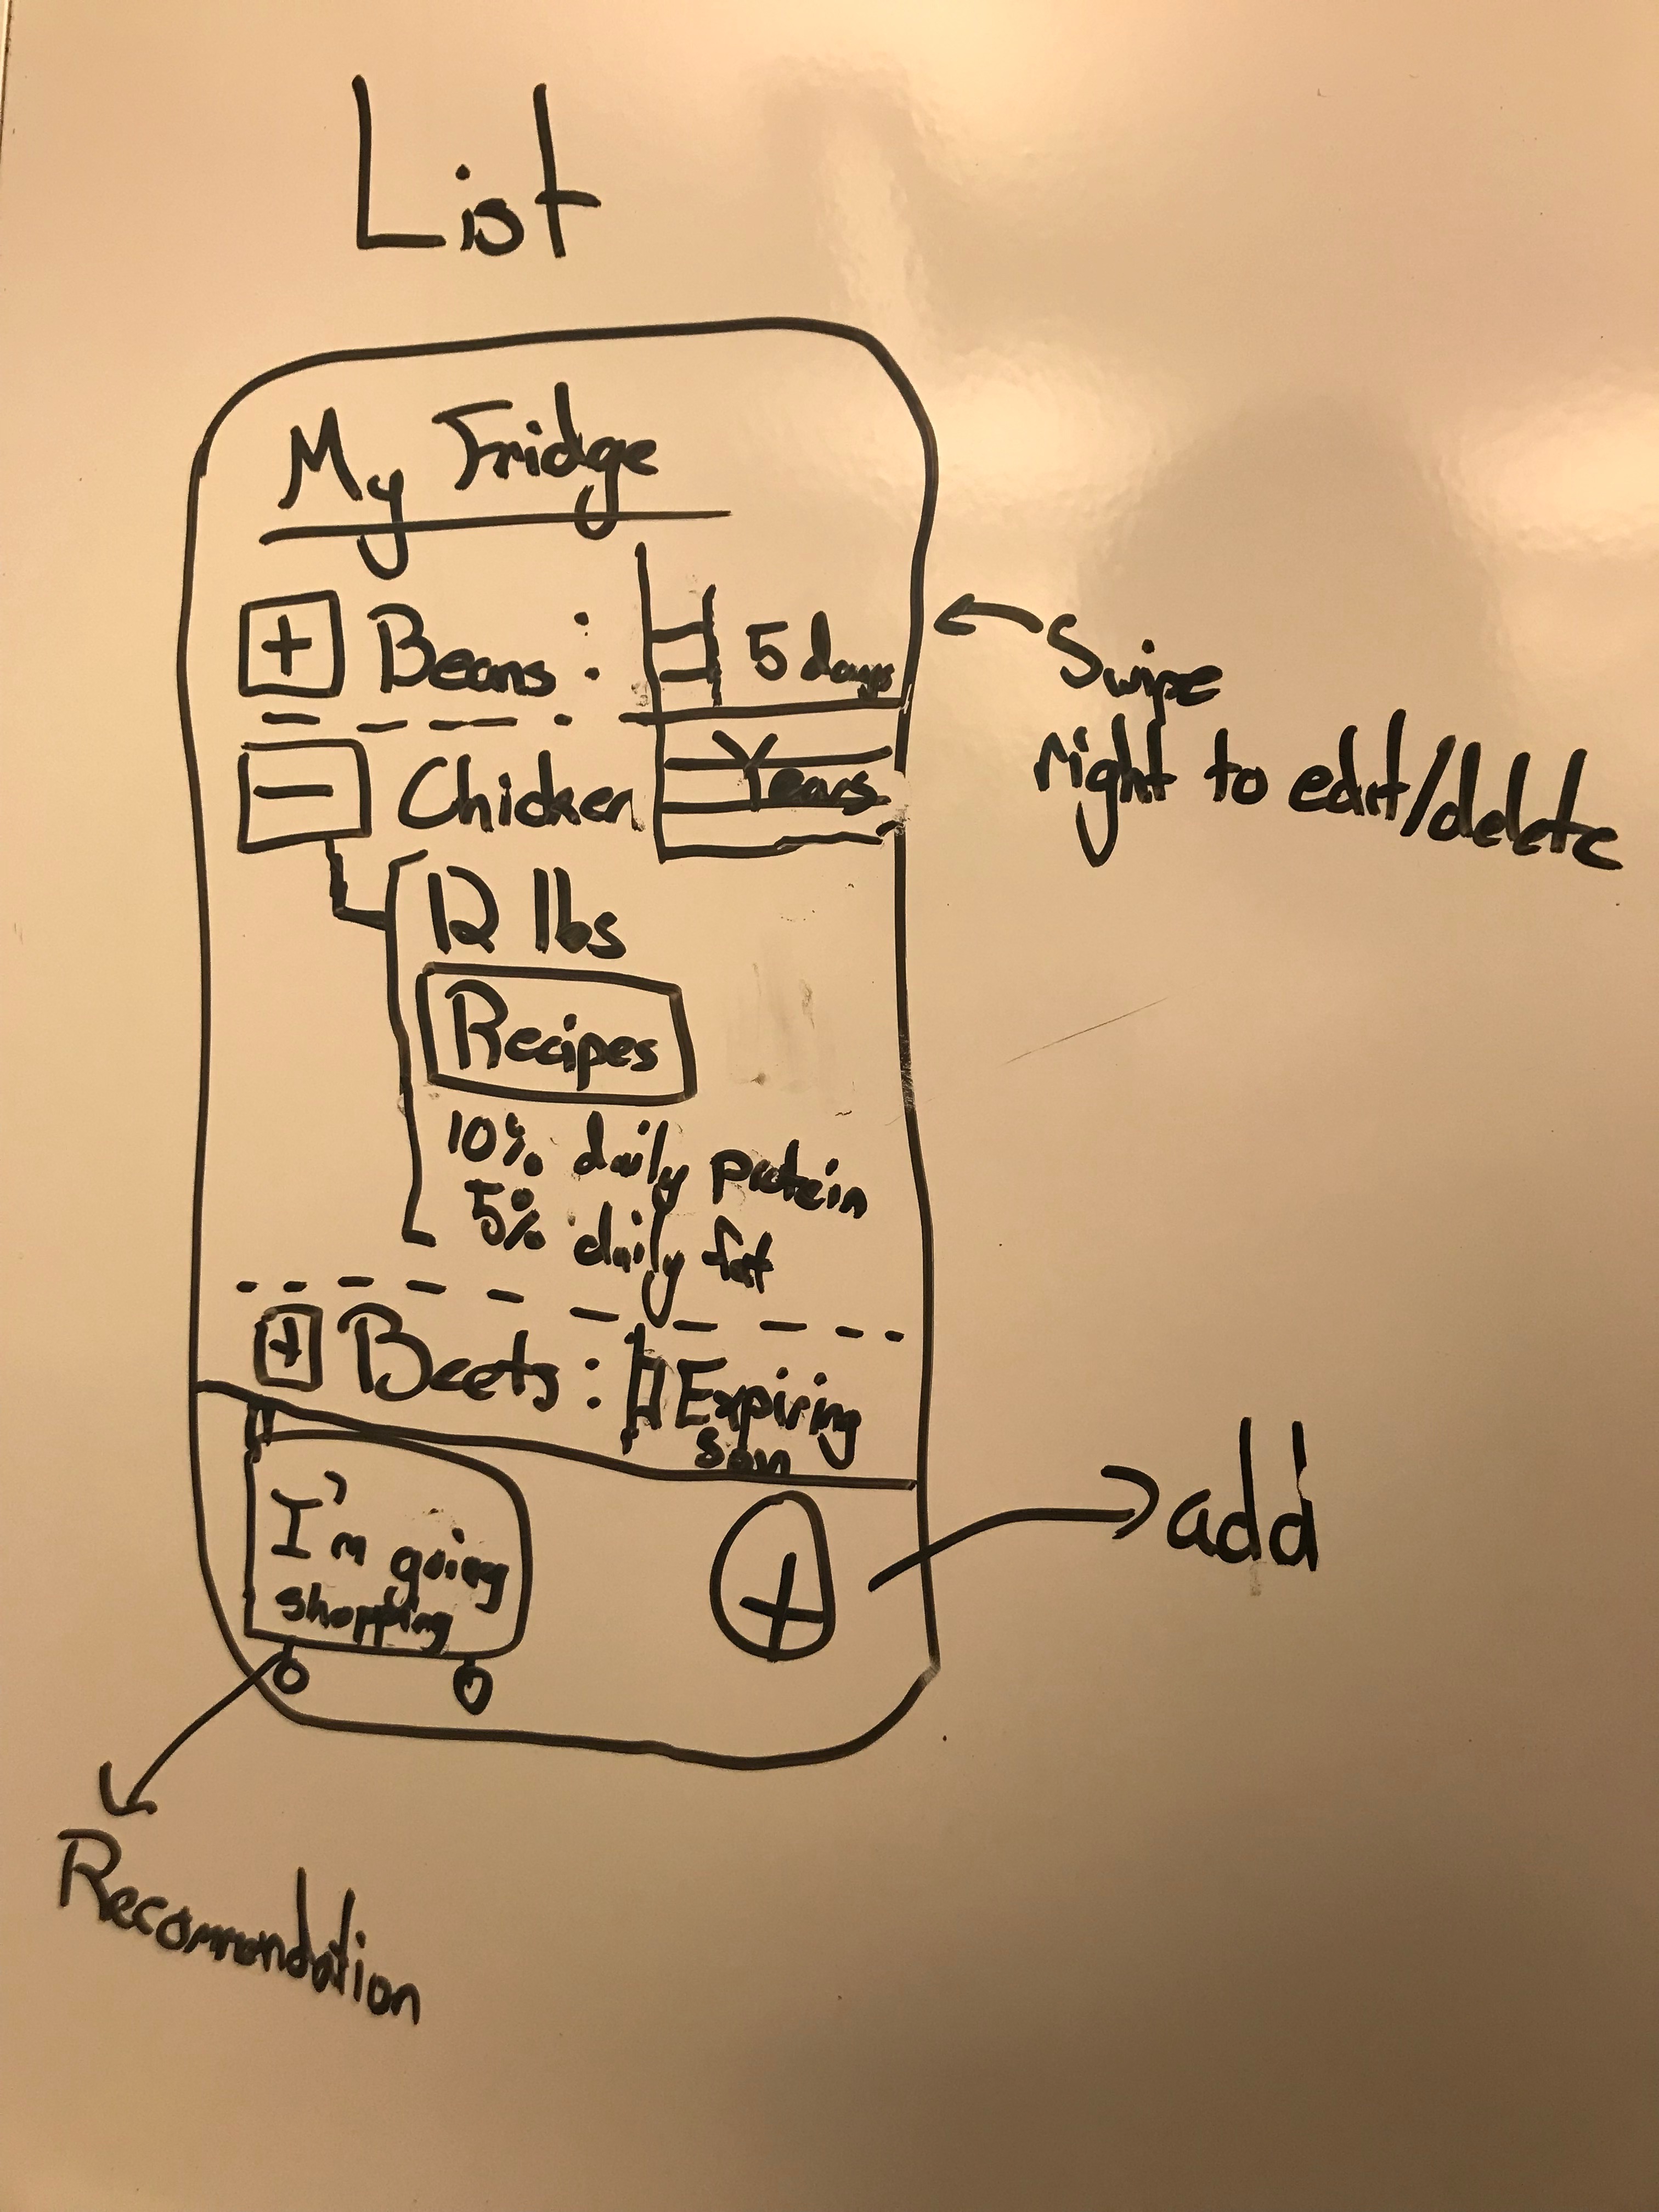 List
My Fridge
+ Beans : 5 days
Swipe
right to edit/delete
- Chicken Years
12 lbs
Recipes
10% daily protein
5% daily fat
+ Beets : Expiring
soon
I'm going
shopping
+
add
Recommendation